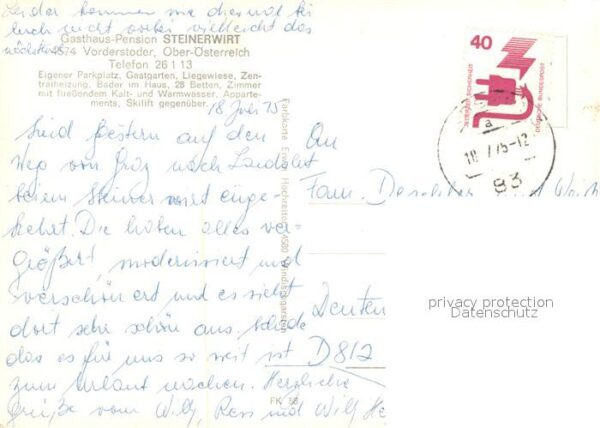 Leider kommen wir diesmal bei
Euch nicht vorbei vielleicht das
nächstemal
Gasthaus-Pension STEINERWIRT
4574 Vorderstoder, Ober-Österreich
Telefon 26 1 13
Eigener Parkplatz, Gastgarten, Liegewiese, Zen-
tralheizung, Bäder im Haus, 28 Betten, Zimmer
mit fließendem Kalt- und Warmwasser, Apparte-
ments, Skilift gegenüber.
18 Juli 75
Sind gestern auf dem
Weg von Graz nach Landshut
beim Steinerwirt einge-
kehrt. Die haben alles ver-
größert, modernisiert und
verschönert und es sieht
dort sehr schön aus. Schade
das es für uns so weit ist
zum Urlaub machen. Herzliche
Grüße vom Willy, Ress und Willy
Farbkarte Erwin Hochreiter, 4580 Windischgarsten
FK 88
An
Fam.
D 812
40
JEDERZEIT SICHERHEIT
DEUTSCHE BUNDESPOST
a
18.7.75-12
83
privacy protection
Datenschutz